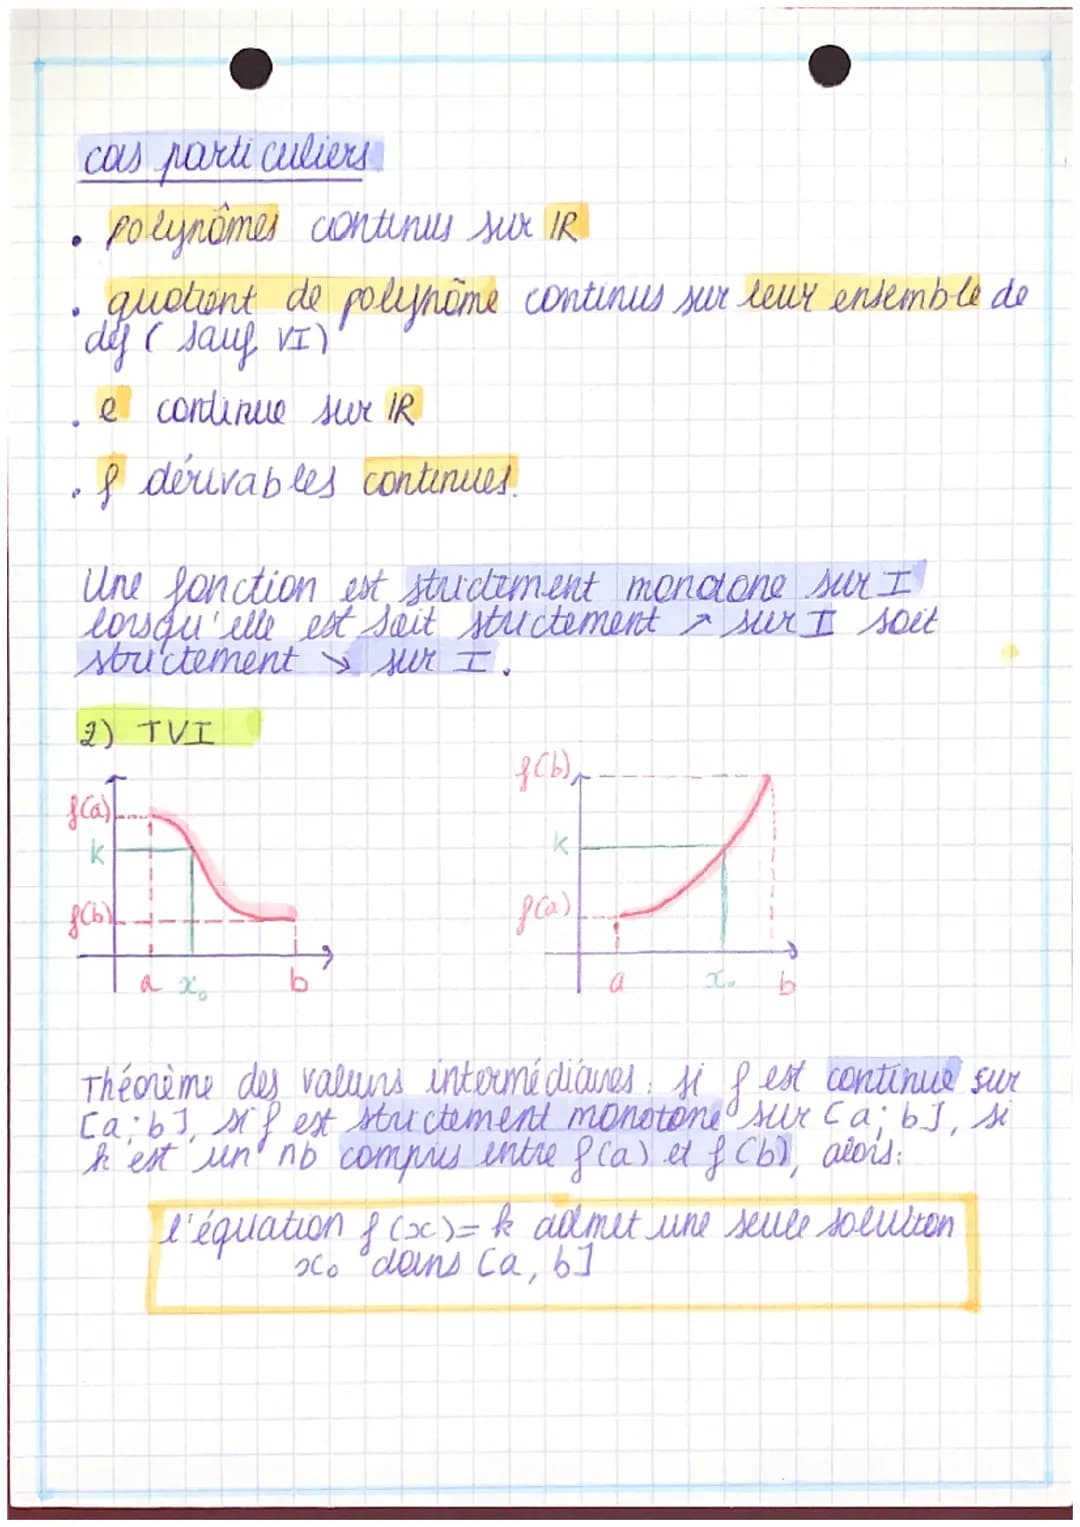 cas particuliers
• polynômes continus sur IR
• quotient de polynôme continus sur leur ensemble de
def (sauf VI)
• e continue sur IR
• f dérivables continues.
Une fonction est strictement monotone sur I
lorsqu'elle est soit strictement ↗ sur I soit
strictement ↘ sur I.
2) TVI
f(a)
k
f(b)
a x₀ b
f(b)
k
f(a)
a x₀ b
Théorème des valeurs intermédiaires : si f est continue sur
[a; b], si f est strictement monotone sur [a; b], si
k est un nb compris entre f(a) et f(b), alors:
l'équation f(x)= k admet une seule solution
x₀ dans [a, b]